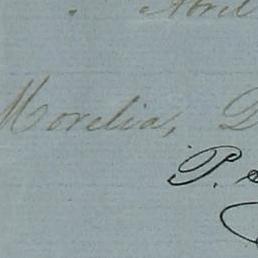 Abril
Morelia, D
P.